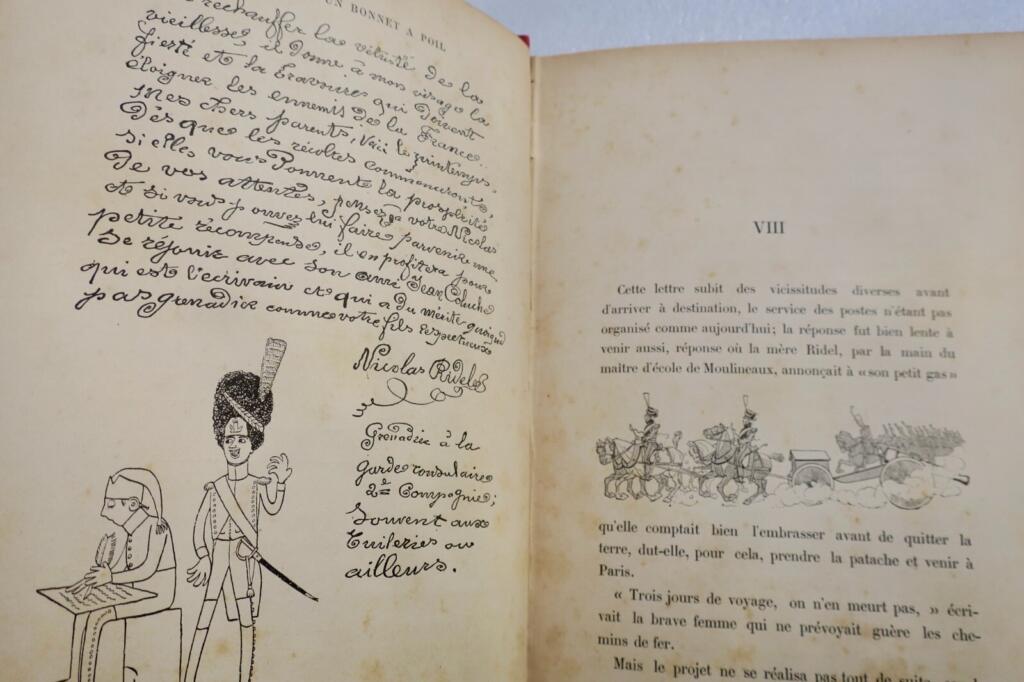 UN BONNET A POIL
réchauffer la vétusté de la
vieillesse, il donne à mon visage la
fierté et la bravoure qui doivent
éloigner les ennemis de la France..
Mes chers parents, voici le printemps.
Dès que les récoltes commenceront,
si elles vous donnent la prospérité
de vos attentes, pensez à votre Nicolas
et si vous pouvez lui faire parvenir une
petite récompense, il en profitera pour
se réjouir avec son ami Jean Coluche
qui est l'écrivain et qui a du mérite quoique
pas grenadier comme votre fils respectueux
Nicolas Ridel
Grenadier à la
garde consulaire
2e Compagnie;
Souvent aux
Tuileries ou
ailleurs.
VIII
Cette lettre subit des vicissitudes diverses avant
d'arriver à destination, le service des postes n'étant pas
organisé comme aujourd'hui; la réponse fut bien lente à
venir aussi, réponse où la mère Ridel, par la main du
maître d'école de Moulineaux, annonçait à « son petit gas »
qu'elle comptait bien l'embrasser avant de quitter la
terre, dut-elle, pour cela, prendre la patache et venir à
Paris.
« Trois jours de voyage, on n'en meurt pas, » écri-
vait la brave femme qui ne prévoyait guère les che-
mins de fer.
Mais le projet ne se réalisa pas tout de suite